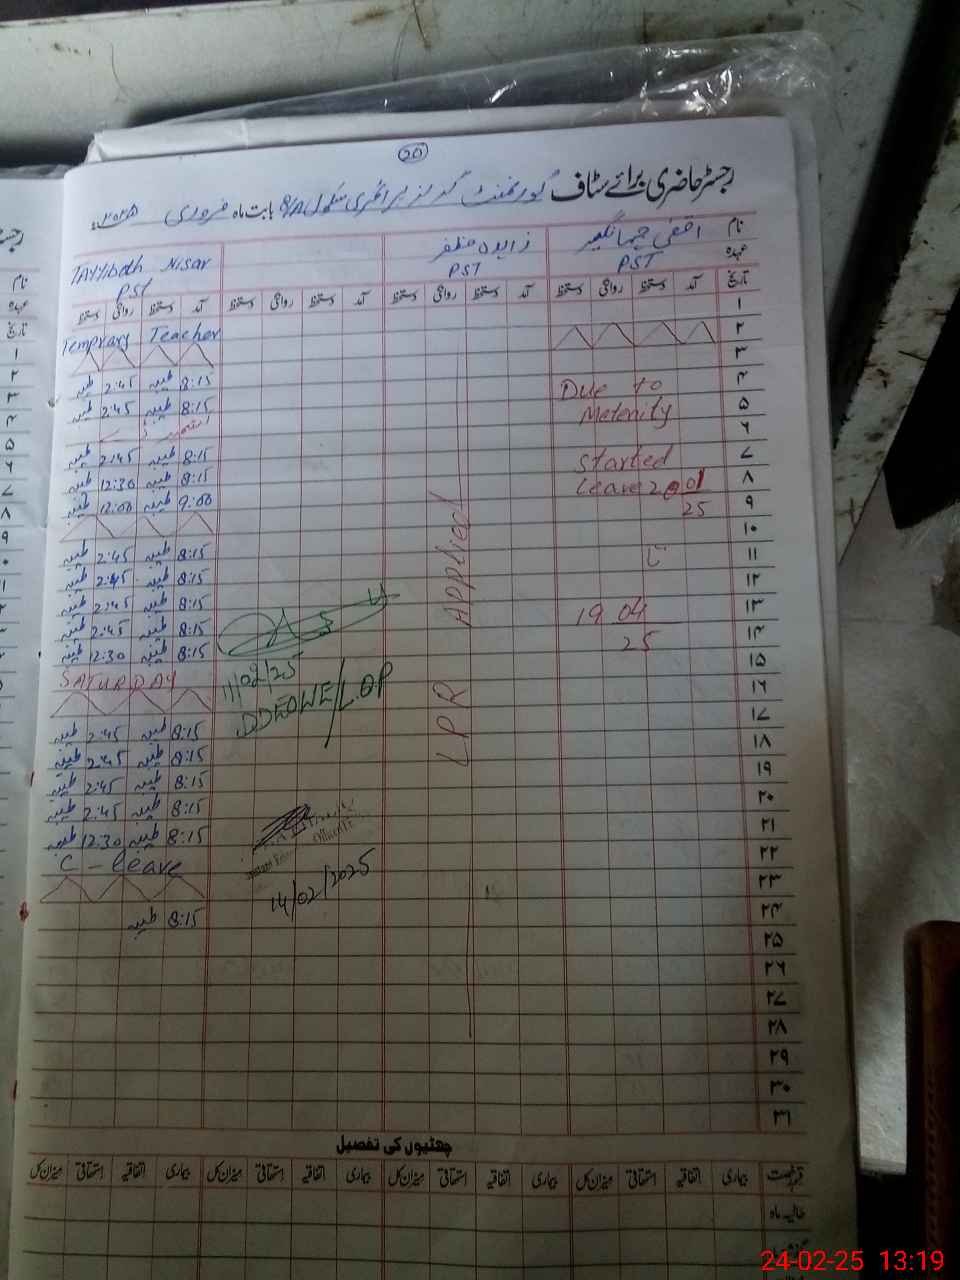 20
رجسٹر حاضری برائے سٹاف گورنمنٹ گرلز پرائمری سکول 8/A بابت ماہ فروری ۲۰۲۵ء
نام
عہدہ
اقصیٰ جہانگیر
PST
زاہدہ مظفر
PST
TAYYibah Nisar
PST
تاریخ آمد دستخط روانگی دستخط آمد دستخط روانگی دستخط آمد دستخط روانگی دستخط آمد دستخط روانگی دستخط
۱ Temprary Teacher
۲
۳ 8:15 طیبہ 2:45 طیبہ
۴ 8:15 طیبہ 2:45 طیبہ
۵
۶ 8:15 طیبہ 2:45 طیبہ
۷ 8:15 طیبہ 12:30 طیبہ
۸ 9:00 طیبہ 12:00 طیبہ
۹
۱۰ 8:15 طیبہ 2:45 طیبہ
۱۱ 8:15 طیبہ 2:45 طیبہ
۱۲ 8:15 طیبہ 2:45 طیبہ
۱۳ 8:15 طیبہ 2:45 طیبہ
۱۴ 8:15 طیبہ 12:30 طیبہ
۱۵ SATURDAY
۱۶
۱۷ 8:15 طیبہ 2:45 طیبہ
۱۸ 8:15 طیبہ 2:45 طیبہ
۱۹ 8:15 طیبہ 2:45 طیبہ
۲۰ 8:15 طیبہ 2:45 طیبہ
۲۱ 8:15 طیبہ 12:30 طیبہ
۲۲ C - leave
۲۳
۲۴ 8:15 طیبہ
۲۵
۲۶
۲۷
۲۸
۲۹
۳۰
۳۱
Due to
Meternity
started
leave 20 01
25
تا
19 04
25
LPR Applied
11/02/25
DDEOWE/L.O.P
14/02/2025
چھٹیوں کی تفصیل
قسم رخصت بیماری اتفاقیہ استحقاقی میزان کل بیماری اتفاقیہ استحقاقی میزان کل بیماری اتفاقیہ استحقاقی میزان کل بیماری اتفاقیہ استحقاقی میزان کل
حالیہ ماہ
نام
عہدہ
تاریخ
۱
۲
۳
۴
۵
۶
۷
۸
۹
24-02-25 13:19